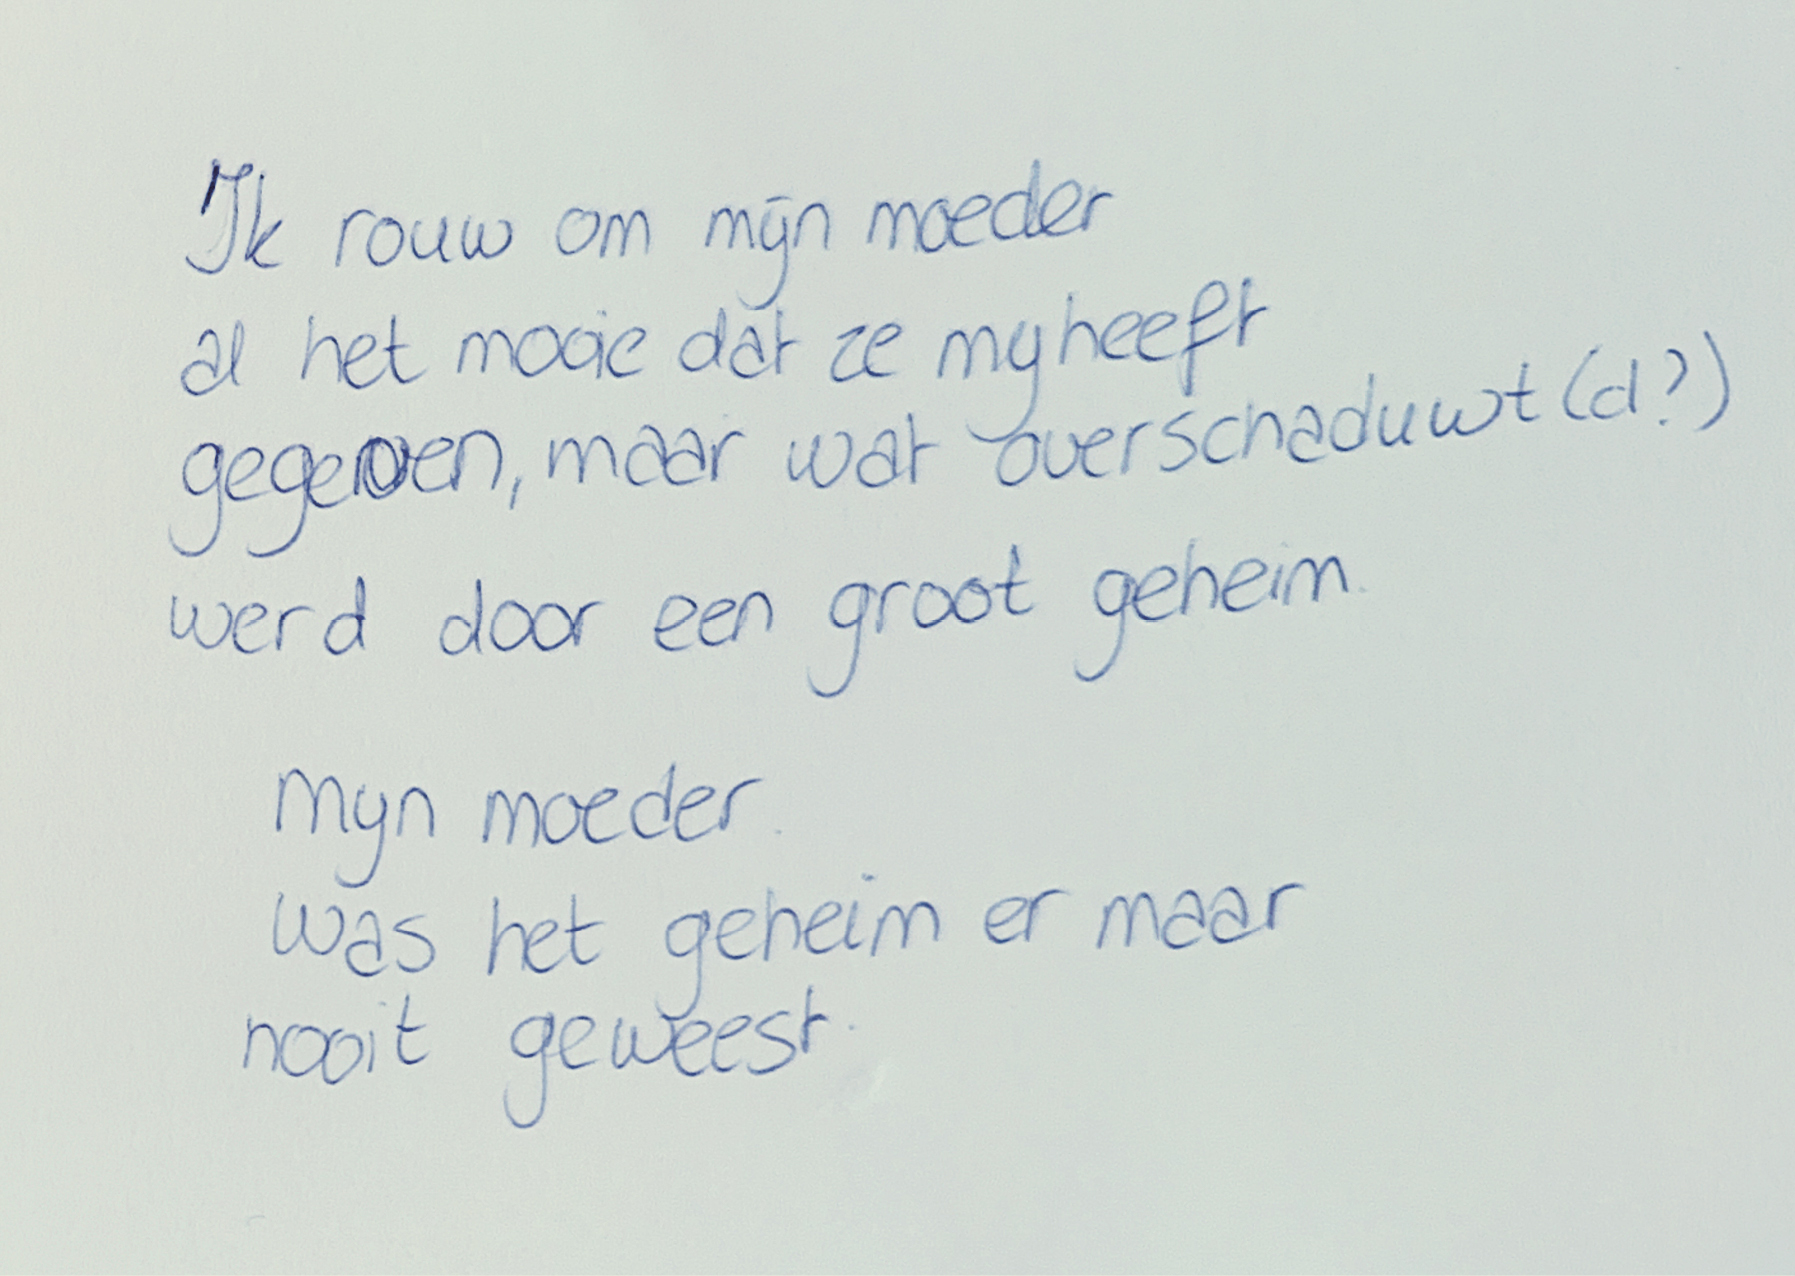 Ik rouw om mijn moeder
al het mooie dat ze mij heeft
gegeven, maar wat overschaduwt (d?)
werd door een groot geheim.
Mijn moeder.
Was het geheim er maar
nooit geweest.